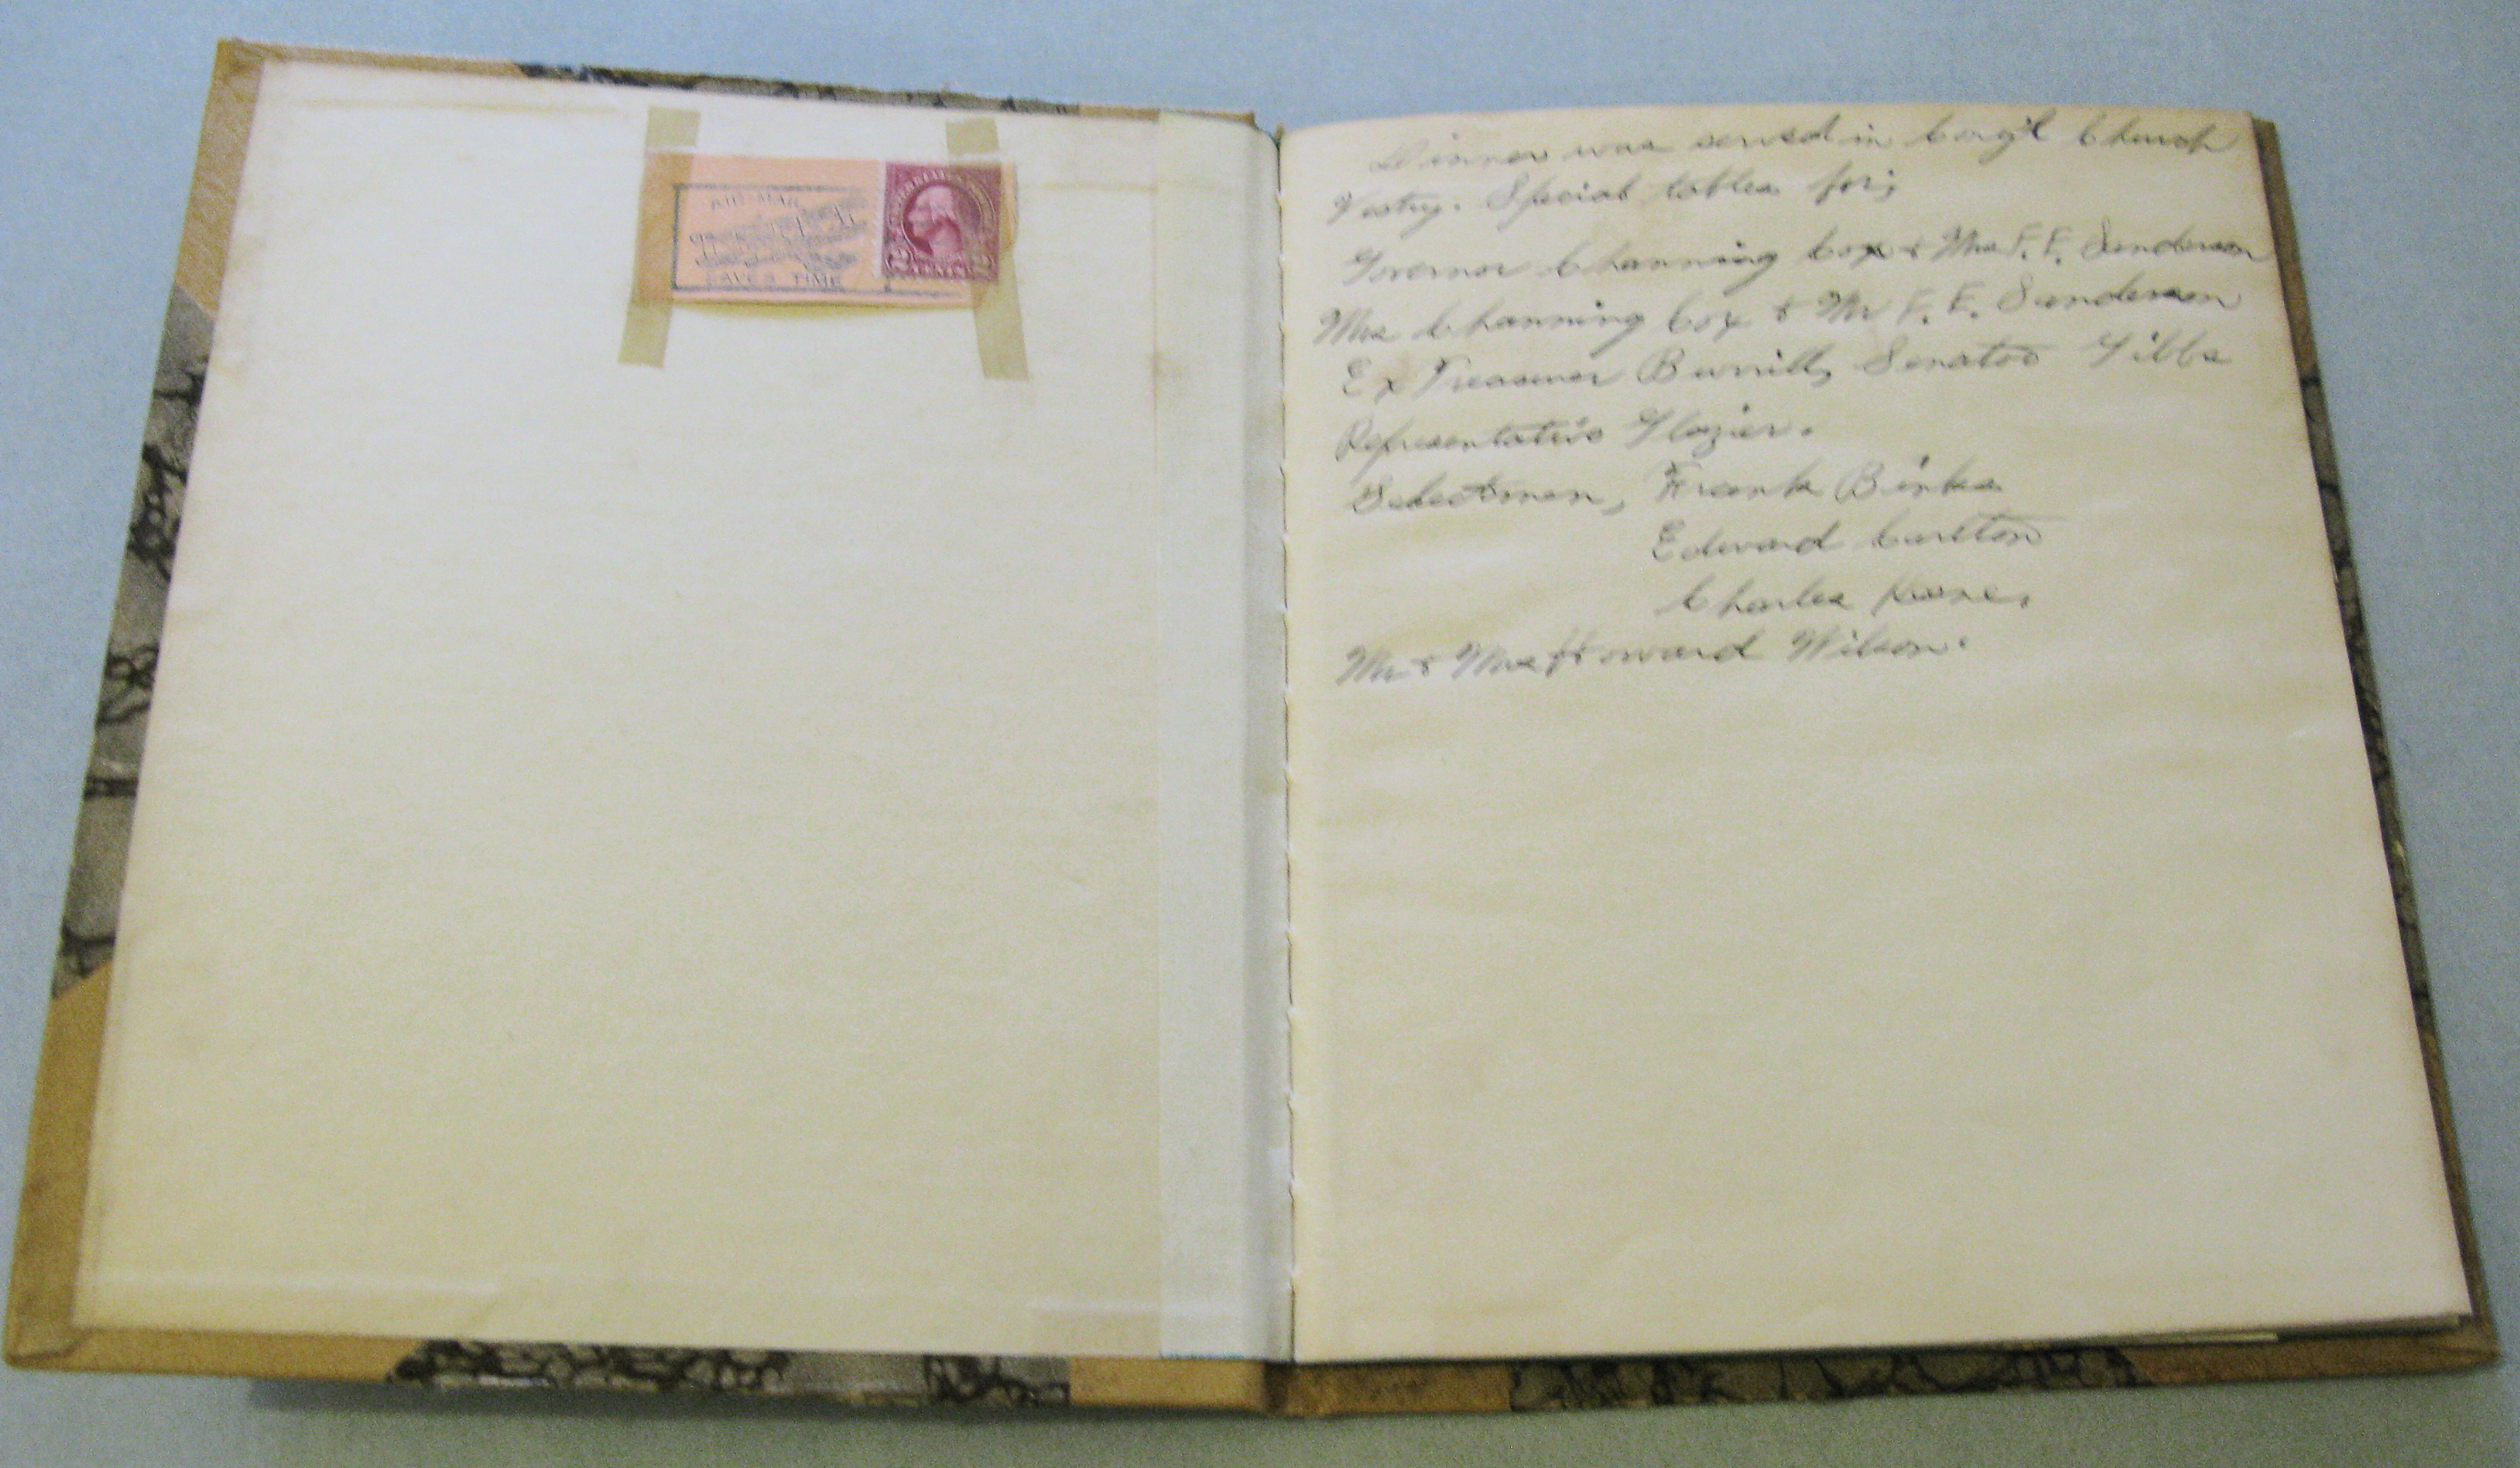 AIR MAIL
SAVES TIME
UNITED STATES POSTAGE
2 CENTS 2
Dinner was served in Cong'l Church
Vestry. Special tables for;
Governor Channing Cox & Mrs F. E. Sanderson
Mrs Channing Cox & Mr F. E. Sanderson
Ex Treasurer Burrill, Senator Gibbs
Representative Glazier.
Selectmen, Frank Binks
Edward Carlton
Charles Keane.
Mr & Mrs Howard Wilson.